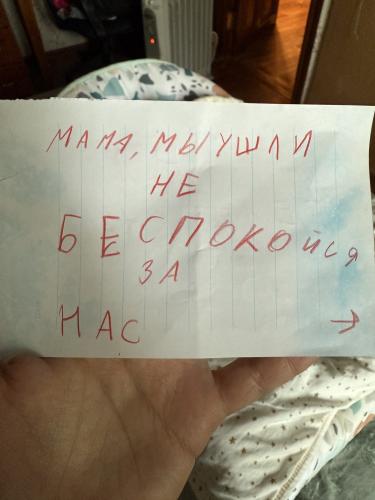 МАМА, МЫ УШЛИ
НЕ
БЕСПОКОйся
ЗА
НАС
→